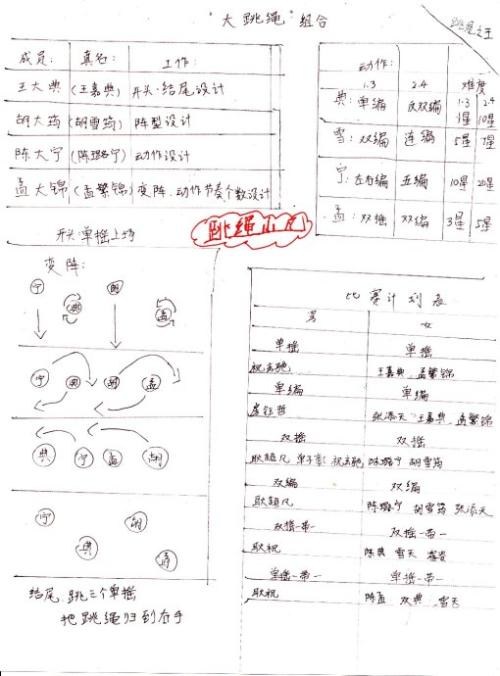 "大跳绳"组合
跳绳之王
成员: 真名: 工作:
王大典 (王嘉典) 开头·结尾设计
胡大筠 (胡雪筠) 阵型设计
陈大宁 (陈璐宁) 动作设计
孟大锦 (孟繁锦) 变阵.动作节奏个数设计
开头:单摇上场
动作:
1.3 2.4 难度
1.3 2.4
典: 单编 反双编 1星 10星
雪: 双编 连编 5星 7星
宁: 左右编 五编 10星 20星
孟: 双摇 双编 3星 5星
跳绳小凡
变阵:
宁 典 胡 孟
宁 典 胡 孟
典 宁 孟 胡
宁 胡
典 孟
结尾.跳三个单摇
把跳绳归到右手
比赛计划表
男 女
单摇 单摇
王嘉典 孟繁锦
单编 单编
张添天 王嘉典 孟繁锦
双摇 双摇
耿超凡 陈璐宁 胡雪筠
双编 双编
耿超凡 陈璐宁 胡雪筠 张添天
双摇一带一 双摇一带一
耿祝 陈典 雪天
单摇一带一 单摇一带一
耿祝 陈孟 双典 雪天